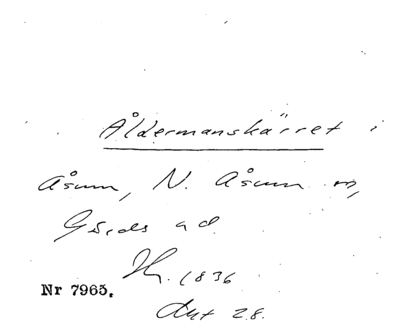 Åldermanskärret i
Åsum, N. Åsum sn,
Gärds hd.
Hr. 1836
Nr 7965.
Akt 28.